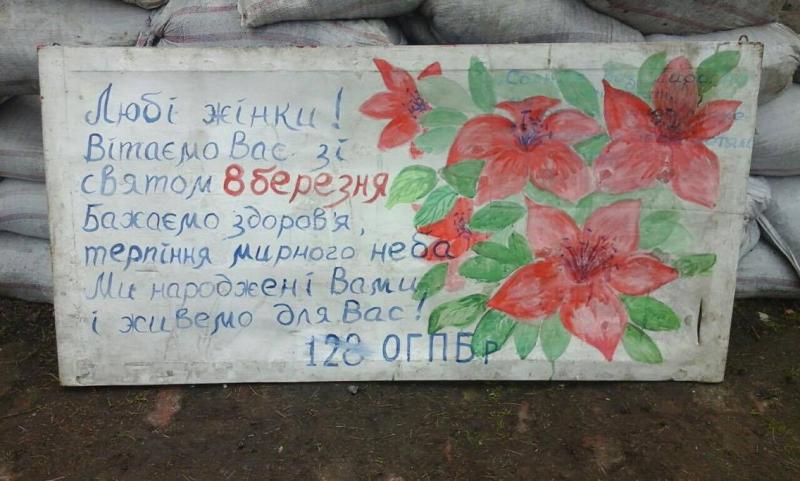 Любі жінки!
Вітаємо Вас зі
святом 8 березня
Бажаємо здоров'я,
терпіння мирного неба
Ми народжені Вами
і живемо для Вас!
128 ОГПБр